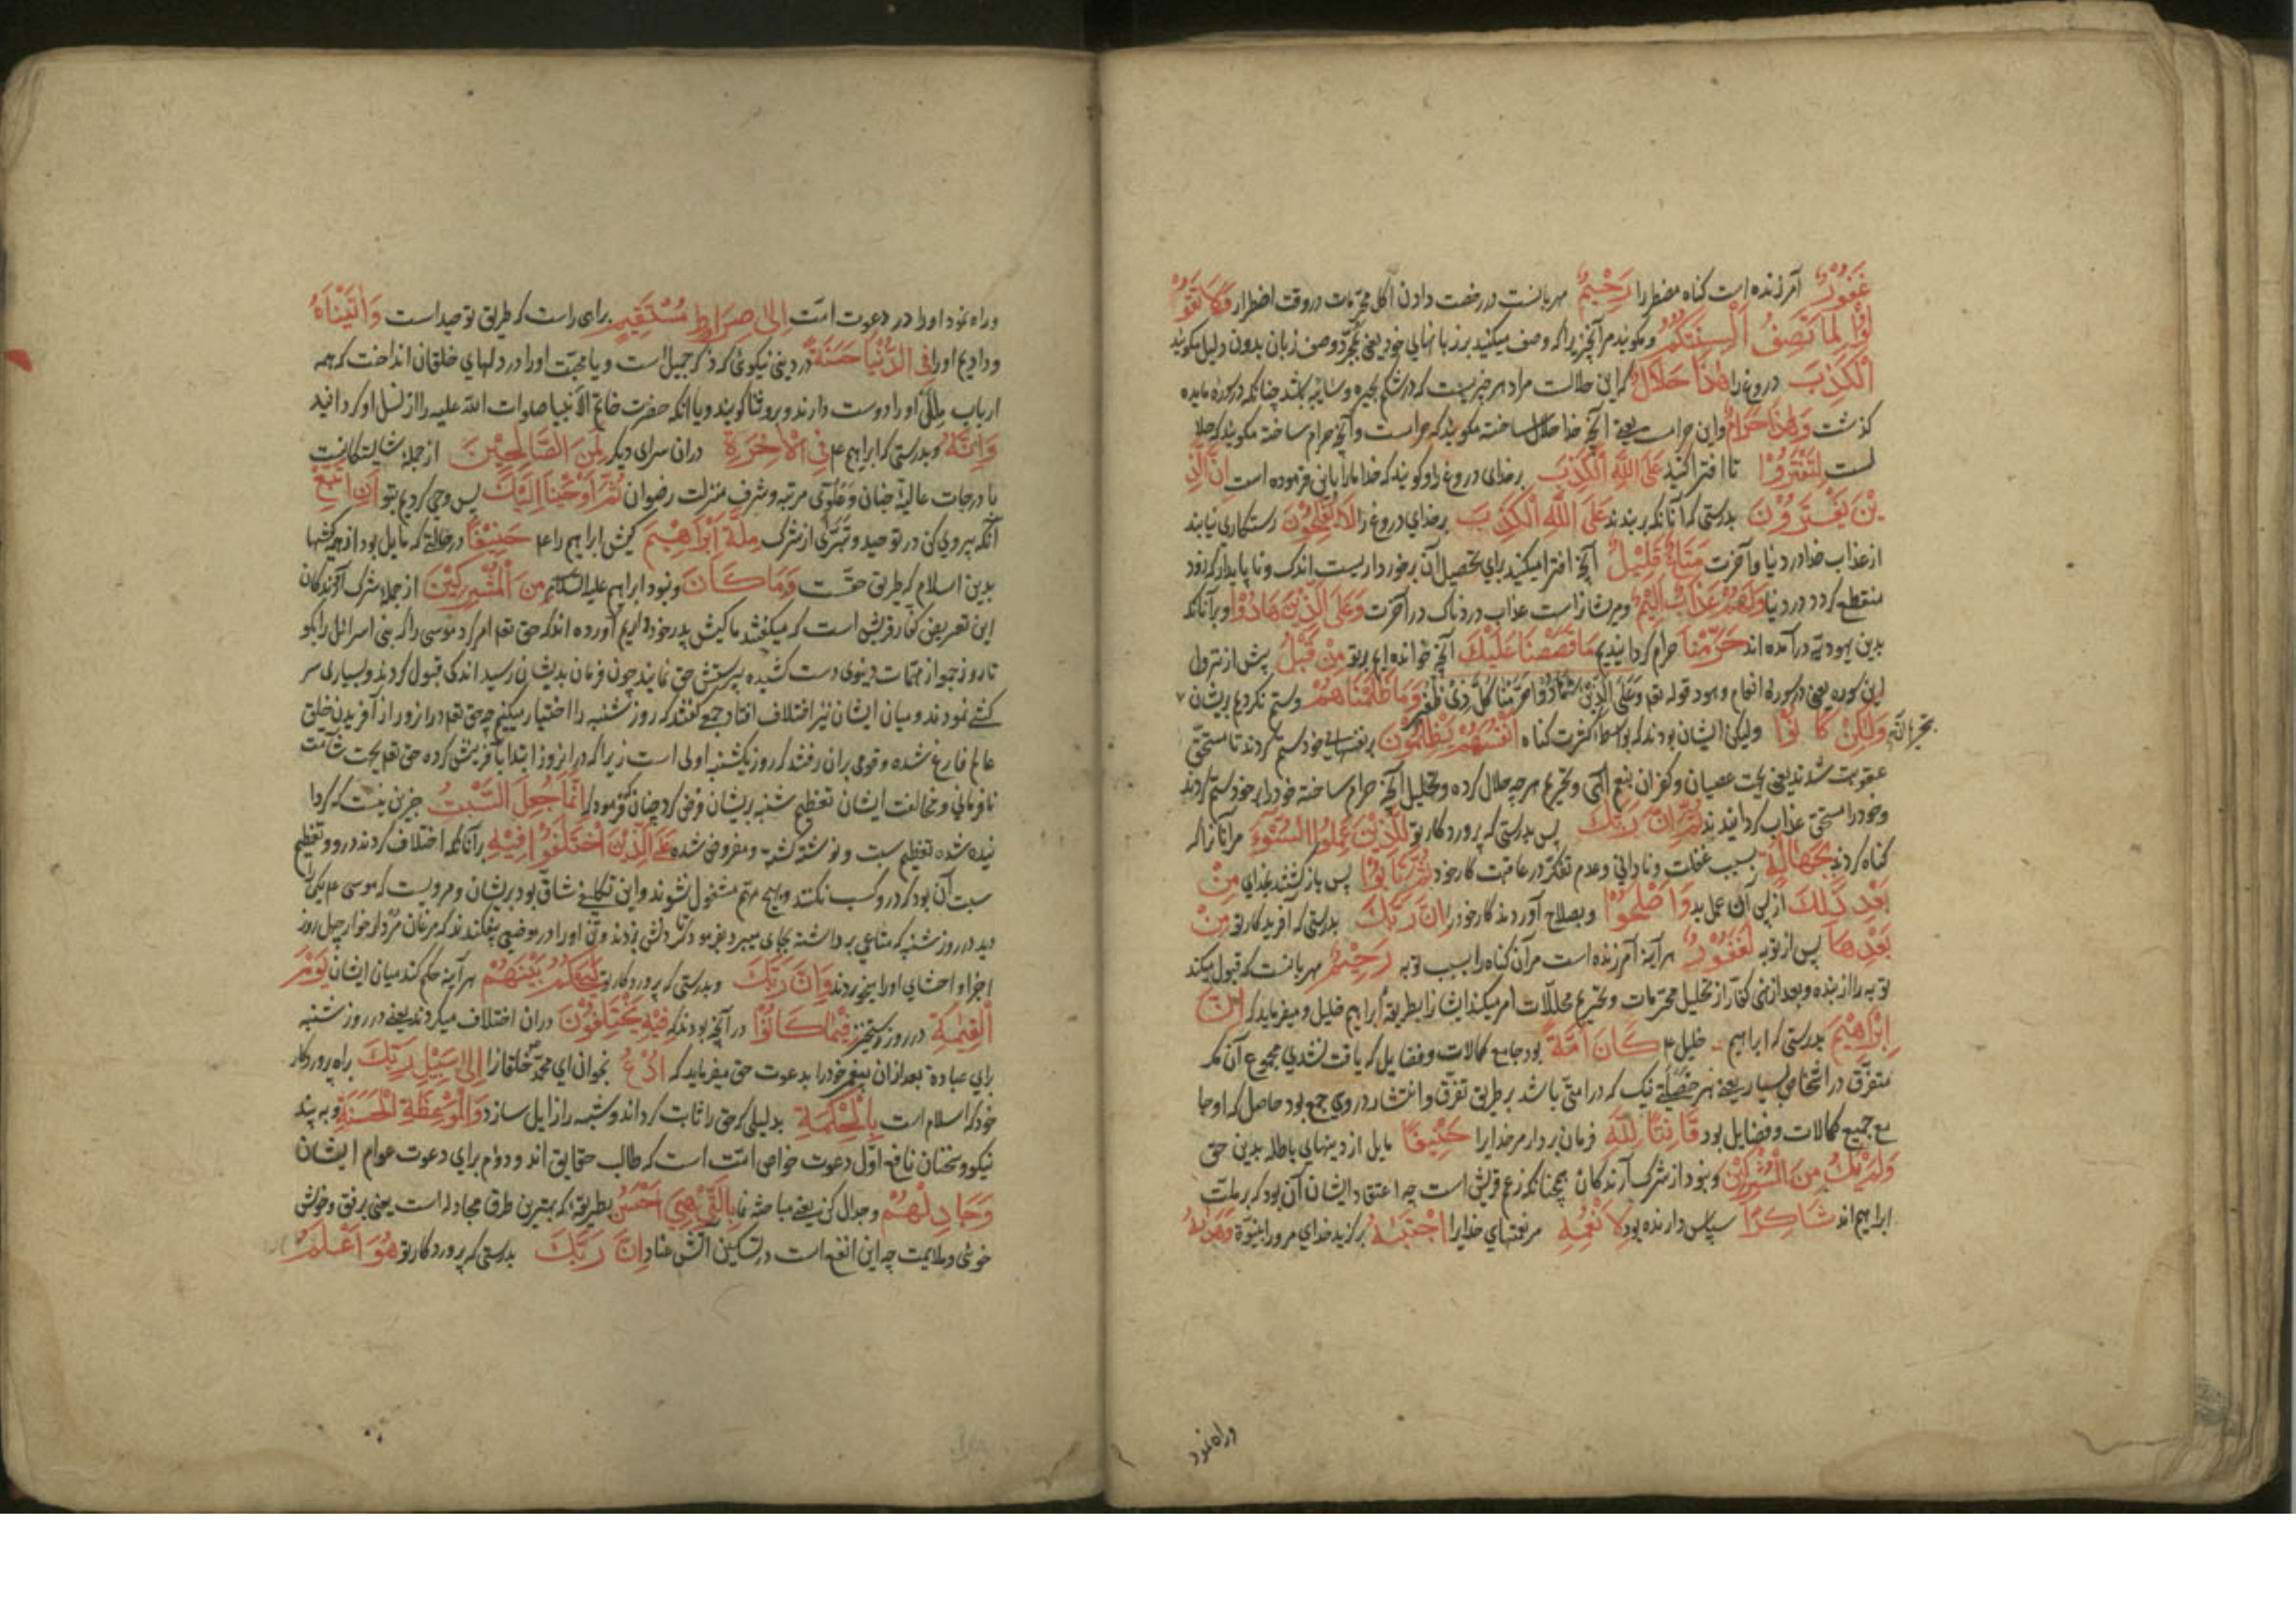 غَفُورٌ آمرزنده است کناه مضطر را رَحِيمٌ مهربانست در رخصت دادن اکل محرمات در وقت اضطرار وَلَا تَقُوْ
لُوْا لِمَا تَصِفُ اَلْسِنَتُكُمُ و مکوئید مر آنچیز را که وصف میکنید بر زبانهای خود یعنی بمجرّد وصف زبان بدون دلیل مکوئید
الْكَذِبَ دروغ را هٰذَا حَلَالٌ که این حلالست مراد هر چیزیست که در شکم بحیره و سائبه باشد چنانکه در سوره مایده
کذشت وَهٰذَا حَرَامٌ و این حرامست یعنی آنچه خدا حلال ساخته مکوئید که حرامست و آنچه حرام ساخته مکوئید که حلا
لست لِتَفْتَرُوْا تا افترا کنید عَلَى اللّٰهِ الْكَذِبَ بر خدای دروغ را و کویند که خدا ما را باین فرموده است اِنَّ الَّذِ
يْنَ يَفْتَرُوْنَ بدرستی که آنانکه بر بندند عَلَى اللّٰهِ الْكَذِبَ بر خدای دروغ را لَا يُفْلِحُوْنَ رستکاری نیابند
از عذاب خدا در دنیا و آخرت مَتَاعٌ قَلِيْلٌ آنچه افترا میکنند برای تحصیل آن برخورداریست اندک و ناپایدار که زود
منقطع کردد در دنیا وَلَهُمْ عَذَابٌ اَلِيْمٌ و مر ایشانراست عذاب دردناک در آخرت وَعَلَى الَّذِيْنَ هَادُوْا و بر آنانکه
بدین یهودیّه در آمده اند حَرَّمْنَا حرام کردانیدیم مَا قَصَصْنَا عَلَيْكَ آنچه خوانده ایم بر تو مِنْ قَبْلُ پیش از نزول
این سوره یعنی در سورۀ انعام و هود قوله تعم وَعَلَى الَّذِيْنَ هَادُوْا حَرَّمْنَا كُلَّ ذِيْ ظُفُرٍ وَمَا ظَلَمْنَاهُمْ و ستم نکردیم بریشان
وَلٰكِنْ كَانُوْا ولیکن ایشان بودند که بواسطۀ کثرت کناه اَنْفُسَهُمْ يَظْلِمُوْنَ بر نفسهای خود ستم کردند تا مستحق
عقوبت شدند یعنی بجهت عصیان و کفران بنعم الهی و تحریم هر چه حلال کرده و تحلیل آنچه حرام ساخته خود را بر خود ستم کردند
و خود را مستحق عذاب کردانیدند ثُمَّ اِنَّ رَبَّكَ پس بدرستی که پروردکار تو لِلَّذِيْنَ عَمِلُوا السُّوْءَ مر آنانرا که
کناه کردند بِجَهَالَةٍ بسبب غفلت و نادانی و عدم تفکر در عاقبت کار خود ثُمَّ تَابُوْا پس باز کشتند بخدای مِنْ
بَعْدِ ذٰلِكَ از پس آن عمل بد وَاَصْلَحُوْا و بصلاح آوردند کار خود را اِنَّ رَبَّكَ بدرستی که آفریدکار تو مِنْ
بَعْدِهَا پس از توبه لَغَفُوْرٌ هر آینه آمرزنده است مر آن کناه را بسبب توبه رَحِيْمٌ مهربانست که قبول میکند
توبه را از بنده و بعد از نهی کفّار از تحلیل محرّمات و تحریم محللات امر میکند ایشانرا بطریقۀ ابراهیم خلیل و میفرماید که اِنَّ
اِبْرَاهِيْمَ بدرستی که ابراهیم خلیل عم كَانَ اُمَّةً بود جامع کمالات و فضایل که یافت نشدی مجموع آن مکر
متفرّق در اشخاص بسیار یعنی هر خصلة نیک که در امتی باشد بر طریق تفرّق و انتشار در وی جمع بود حاصل که او جا
مع جمیع کمالات و فضایل بود قَانِتًا لِلّٰهِ فرمان بردار مر خدایرا حَنِيْفًا مایل از دینهای باطله بدین حق
وَلَمْ يَكُ مِنَ الْمُشْرِكِيْنَ و نبود از شرک آرندکان همچنانکه زعم قریش است چه اعتقاد ایشان آن بود که بر ملّت
ابراهیم اند شَاكِرًا سپاس دارنده بود لِاَنْعُمِهِ مر نعمتهای خدایرا اِجْتَبٰهُ برکزید خدای مر او را بنبوّة وَهَدٰهُ
وراه نمود
وراه نمود او را در دعوت امّت اِلٰى صِرَاطٍ مُسْتَقِيْمٍ براهی راست که طریق توحید است وَاٰتَيْنَاهُ
و دادیم او را فِى الدُّنْيَا حَسَنَةً در دنیی نیکوئی که ذکر جمیل است و یا محبّت او را در دلهای خلقان انداخت که همه
ارباب مِلَل او را دوست دارند و برو ثنا کویند و یا انکه حضرت خاتم الانبیا صلوات الله علیه را از نسل او کردانید
وَاِنَّهُ و بدرستی که ابراهیم عم فِى الْاٰخِرَةِ در ان سرای دیکر لَمِنَ الصَّالِحِيْنَ از جملۀ شایستکانست
با درجات عالیۀ جنان و عُلُوّی مرتبه و شرف منزلت رضوان ثُمَّ اَوْحَيْنَا اِلَيْكَ پس وحی کردیم بتو اَنِ اتَّبِعْ
آنکه پیروی کن در توحید و تبرّی از شرک مِلَّةَ اِبْرَاهِيْمَ کیش ابراهیم را عم حَنِيْفًا در حالتی که مایل بود از همه کیشها
بدین اسلام که طریق حقّست وَمَا كَانَ و نبود ابراهیم علیه السلام مِنَ الْمُشْرِكِيْنَ از جملۀ شرک آرندکان
این تعریض کفّار قریش است که میکفتند ما کیش پدر خود داریم آورده اند که حق تعم امر کرد موسی را که بنی اسرائل را بکو
تا روز جمعه از مهمّات دینوی دست کشیده بپرستش حق نمایند چون فرمان بدیشان رسید اندکی قبول کردند و بسیاری سر
کشی نمودند و میان ایشان نیز اختلاف افتاد جمعی کفتند که روز شنبه را اختیار میکنیم چه حق تعم در انروز از آفریدن خلق
عالم فارغ شده و قومی بران رفتند که روز یکشنبه اولی است زیرا که در انروز ابتدا بآفرینش کرده حق تعم بجهت شآمت
نافرمانی و مخالفت ایشان تعظیم شنبه بریشان فرض کرد چنانکه فرمود که اِنَّمَا جُعِلَ السَّبْتُ جزین نیست که کردا
نیده شده تعظیم سبت و نوشته کشته و مفروض شده عَلَى الَّذِيْنَ اخْتَلَفُوْا فِيْهِ بر آنانکه اختلاف کردند درو و تعظیم
سبت آن بود که درو کسب نکنند و بهیچ مهم مشغول نشوند و این تکلیف شاق بود بریشان و مرویست که موسی عم یکی را
دید در روز شنبه که متاعی برداشته بجای میبرد بفرمود تا کردنش بزدند و تن او را در موضعی بیفکندند که مرغان مردار خوار چهل روز
اجزا و احشای او را میخوردند وَاِنَّ رَبَّكَ و بدرستی که پروردکار تو لَيَحْكُمُ بَيْنَهُمْ هر آینه حکم کند میان ایشان يَوْمَ
الْقِيٰمَةِ در روز رستخیز فِيْمَا كَانُوْا در آنچه بودند که فِيْهِ يَخْتَلِفُوْنَ در ان اختلاف میکردند یعنی در روز شنبه
برای عباده بعد از ان پیغمبر خود را بدعوت حق میفرماید که اُدْعُ بخوان ای محمّد خلقانرا اِلٰى سَبِيْلِ رَبِّكَ براه پروردکار
خود که اسلام است بِالْحِكْمَةِ بدلیلی که حق را ثابت کرداند و شبهه را زایل سازد وَالْمَوْعِظَةِ الْحَسَنَةِ و به پند
نیکو و سخنان نافع اوّل دعوت خواص امّت است که طالب حقایق اند و دوم برای دعوت عوام ایشان
وَجَادِلْهُمْ و جدال کن یعنی مباحثه نما بِالَّتِيْ هِيَ اَحْسَنُ بطریقۀ که بهترین طرق مجادله است یعنی برفق و خوش
خوئی و ملایمت چه این انفع است در تسکین آتش عناد اِنَّ رَبَّكَ بدرستی که پروردکار تو هُوَ اَعْلَمُ